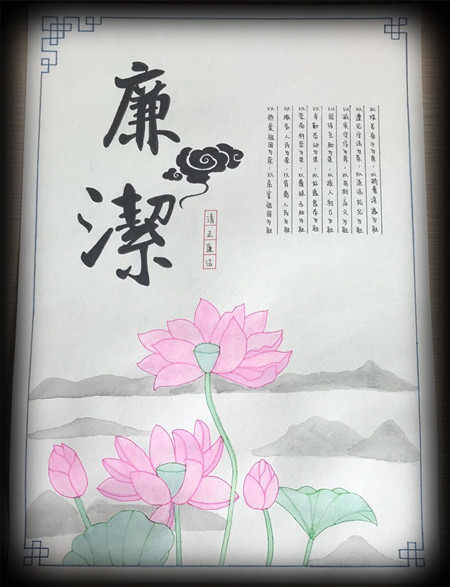 廉潔
清正廉洁
以热爱祖国为荣,以危害祖国为耻
以服务人民为荣,以背离人民为耻
以崇尚科学为荣,以愚昧无知为耻
以辛勤劳动为荣,以好逸恶劳为耻
以团结互助为荣,以损人利己为耻
以诚实守信为荣,以见利忘义为耻
以遵纪守法为荣,以违法乱纪为耻
以艰苦奋斗为荣,以骄奢淫逸为耻